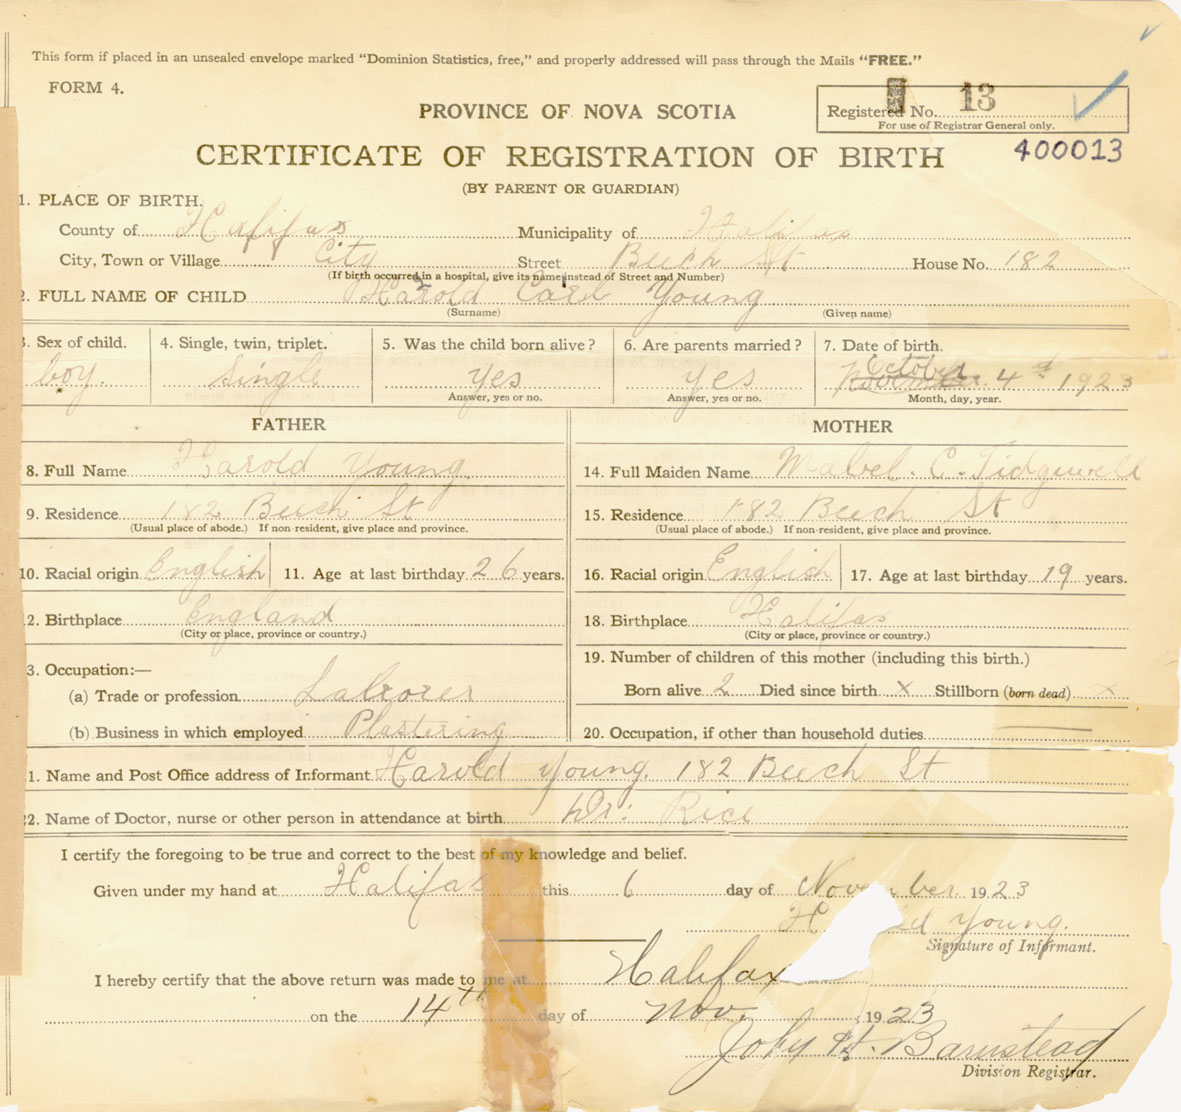 This form if placed in an unsealed envelope marked "Dominion Statistics, free," and properly addressed will pass through the Mails "FREE."
FORM 4.
PROVINCE OF NOVA SCOTIA
Registered No. 13
For use of Registrar General only.
CERTIFICATE OF REGISTRATION OF BIRTH
400013
(BY PARENT OR GUARDIAN)
1. PLACE OF BIRTH.
County of Halifax Municipality of Halifax
City, Town or Village City Street Beech St House No. 182
(If birth occurred in a hospital, give its name instead of Street and Number)
2. FULL NAME OF CHILD Harold Earl Young
(Surname) (Given name)
3. Sex of child. 4. Single, twin, triplet. 5. Was the child born alive? 6. Are parents married? 7. Date of birth.
October
boy. Single yes yes November 4th 1923
Answer, yes or no. Answer, yes or no. Month, day, year.
FATHER MOTHER
8. Full Name Harold Young 14. Full Maiden Name Mabel. C. Tidgwell
9. Residence 182 Beech St 15. Residence 182 Beech St
(Usual place of abode.) If non resident, give place and province. (Usual place of abode.) If non-resident, give place and province.
10. Racial origin English 11. Age at last birthday 26 years. 16. Racial origin English 17. Age at last birthday 19 years.
2. Birthplace England 18. Birthplace Halifax
(City or place, province or country.) (City or place, province or country.)
3. Occupation:— 19. Number of children of this mother (including this birth.)
(a) Trade or profession Laborer Born alive 2 Died since birth x Stillborn (born dead) x
(b) Business in which employed Plastering 20. Occupation, if other than household duties —
1. Name and Post Office address of Informant Harold Young. 182 Beech St
22. Name of Doctor, nurse or other person in attendance at birth Dr. Rice
I certify the foregoing to be true and correct to the best of my knowledge and belief.
Given under my hand at Halifax this 6 day of November 1923
H ld Young.
Signature of Informant.
I hereby certify that the above return was made to me at Halifax
on the 14th day of Nov. 1923
John H. Barnstead
Division Registrar.